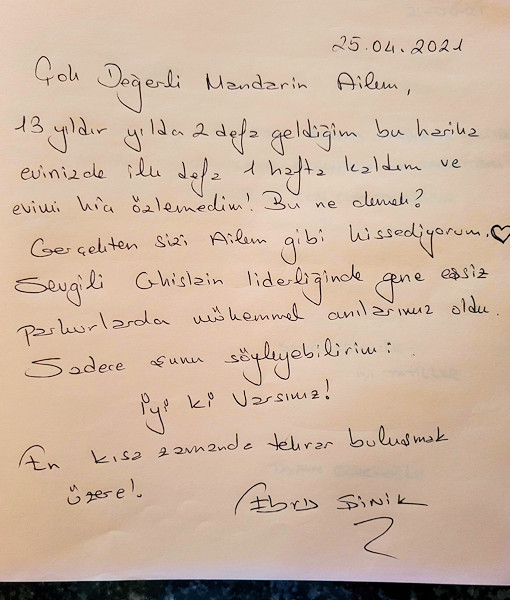 25.04.2021
Çok Değerli Mandarin Ailem,
13 yıldır yılda 2 defa geldiğim bu harika
evinizde ilk defa 1 hafta kaldım ve
evimi hiç özlemedim! Bu ne demek?
Gerçekten sizi Ailem gibi hissediyorum.♡
Sevgili Ghislain liderliğinde gene eşsiz
parkurlarda mükemmel anılarımız oldu.
Sadece şunu söyleyebilirim:
İyi ki Varsınız!
En kısa zamanda tekrar buluşmak
üzere!
Ebru ŞİNİK